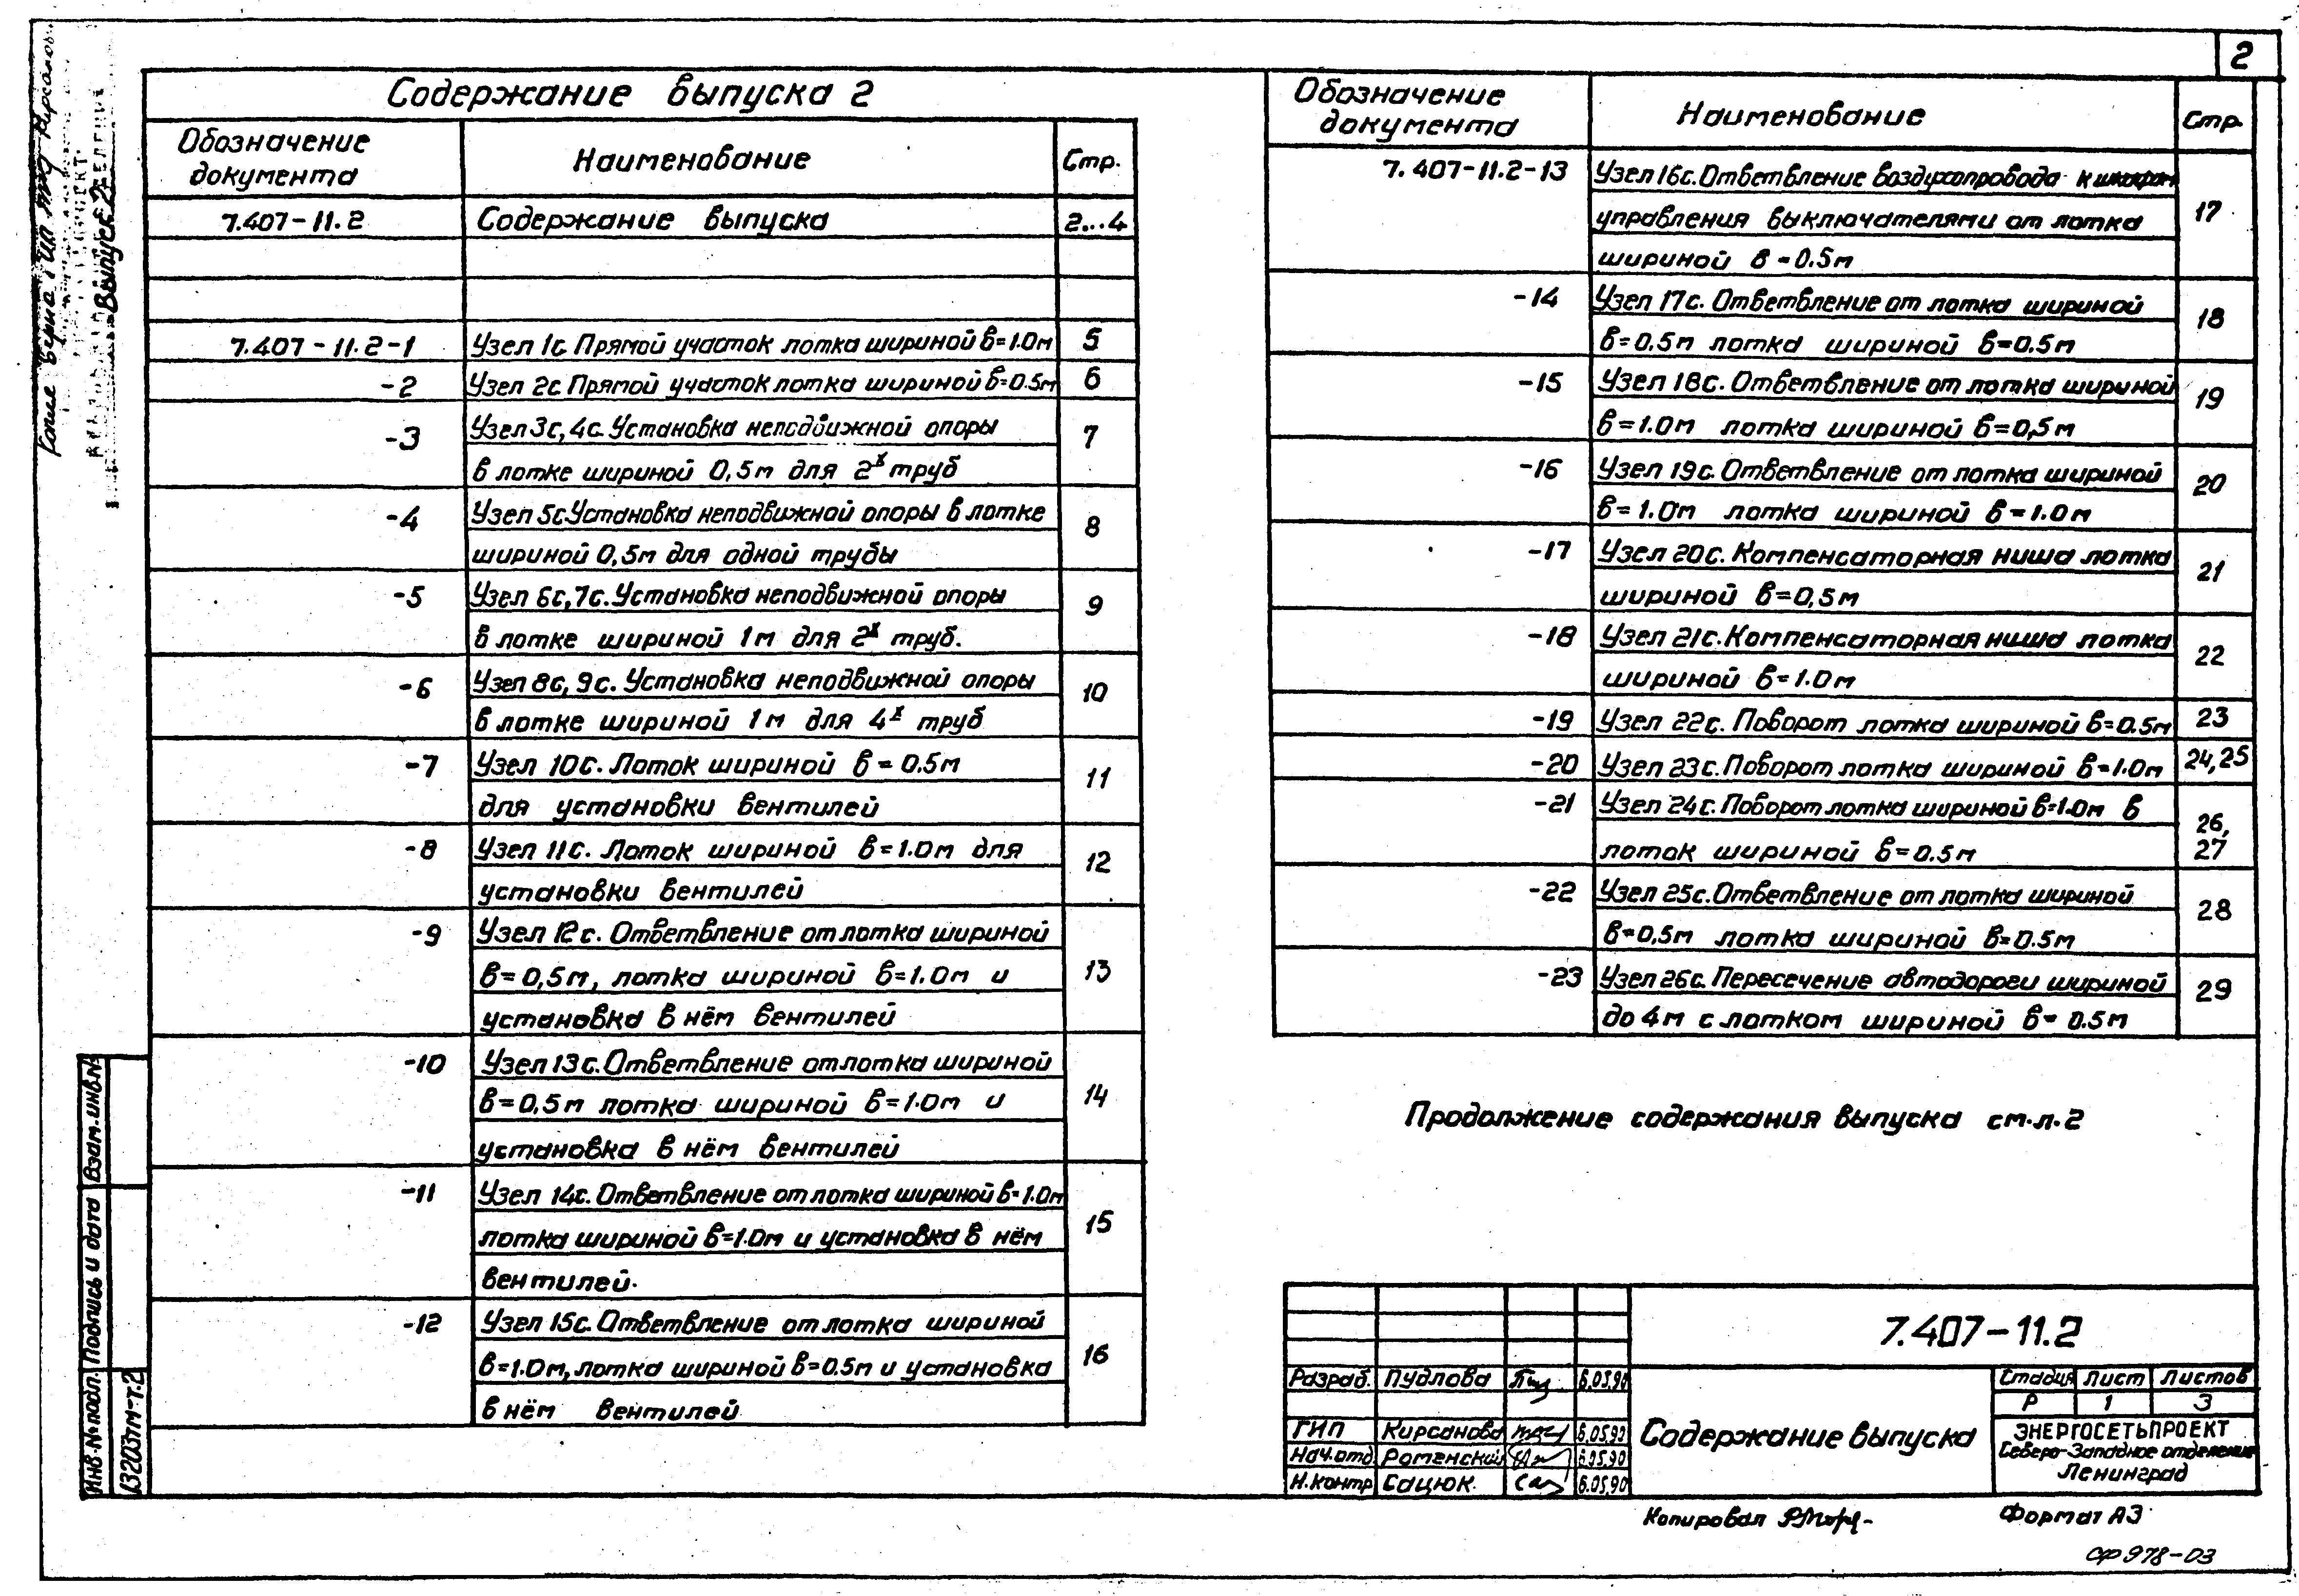 2
Содержание выпуска 2
Обозначение документа Наименование Стр.
7.407-11.2 Содержание выпуска 2...4
7.407-11.2-1 Узел 1с. Прямой участок лотка шириной в=1.0м 5
-2 Узел 2с. Прямой участок лотка шириной в=0.5м 6
-3 Узел 3с, 4с. Установка неподвижной опоры 7
в лотке шириной 0,5м для 2х труб
-4 Узел 5с Установка неподвижной опоры в лотке 8
шириной 0,5м для одной трубы
-5 Узел 6с, 7с. Установка неподвижной опоры 9
в лотке шириной 1м для 2х труб.
-6 Узел 8с, 9с. Установка неподвижной опоры 10
в лотке шириной 1м для 4х труб
-7 Узел 10с. Лоток шириной в=0.5м 11
для установки вентилей
-8 Узел 11с. Лоток шириной в=1.0м для 12
установки вентилей
-9 Узел 12с. Ответвление от лотка шириной
в=0,5м, лотка шириной в=1.0м и 13
установка в нём вентилей
-10 Узел 13с. Ответвление от лотка шириной
в=0,5м лотка шириной в=1.0м и 14
установка в нём вентилей
-11 Узел 14с. Ответвление от лотка шириной в=1.0м
лотка шириной в=1.0м и установка в нём 15
вентилей.
-12 Узел 15с. Ответвление от лотка шириной
в=1.0м, лотка шириной в=0.5м и установка 16
в нём вентилей
Обозначение документа Наименование Стр.
7.407-11.2-13 Узел 16с. Ответвление воздухопровода к шкафам
управления выключателями от лотка 17
шириной в=0.5м
-14 Узел 17с. Ответвление от лотка шириной 18
в=0.5м лотка шириной в=0.5м
-15 Узел 18с. Ответвление от лотка шириной 19
в=1.0м лотка шириной в=0,5м
-16 Узел 19с. Ответвление от лотка шириной 20
в=1.0м лотка шириной в=1.0м
-17 Узел 20с. Компенсаторная ниша лотка 21
шириной в=0,5м
-18 Узел 21с. Компенсаторная ниша лотка 22
шириной в=1.0м
-19 Узел 22с. Поворот лотка шириной в=0.5м 23
-20 Узел 23с. Поворот лотка шириной в=1.0м 24,25
-21 Узел 24с. Поворот лотка шириной в=1.0м в 26,
лоток шириной в=0.5м 27
-22 Узел 25с. Ответвление от лотка шириной 28
в=0,5м лотка шириной в=0.5м
-23 Узел 26с. Пересечение автодороги шириной 29
до 4м с лотком шириной в=0.5м
Продолжение содержания выпуска см.л.2
7.407-11.2
Разраб. Пудлова 6.05.90
ГИП Кирсанова 6.05.90
Нач.отд Роменский 6.05.90
Н.контр Сацюк 6.05.90
Содержание выпуска
Стадия Лист Листов
Р 1 3
ЭНЕРГОСЕТЬПРОЕКТ
Северо-Западное отделение
Ленинград
Копировал
Формат А3
сф 978-03
Инв.№подл. Подпись и дата Взам.инв.№
13203тм-т.2
Выпуск 2